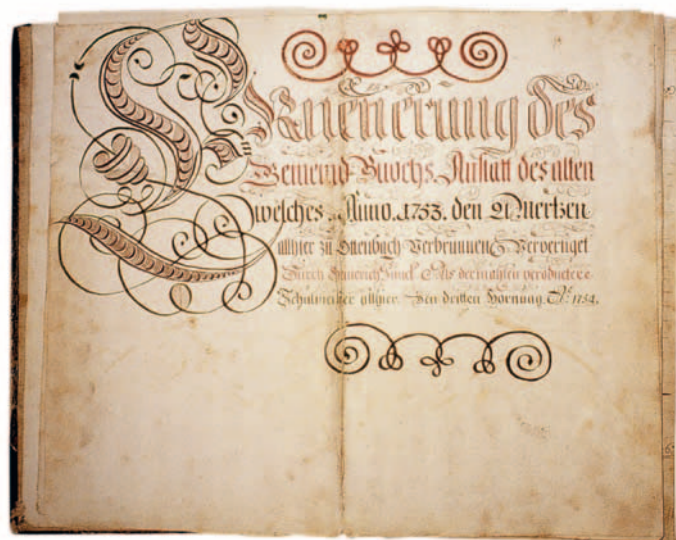 Erneuerung des
Gemeind Buochs Anstatt des alten
welches Anno 1753. den 21 Mertzen
allhier zu Ottenbach Verbrunnen Ververttiget
Durch Heinerich Als der mahlen verordnete
Schulmeister allhier. Den dritten Hornung A.º 1754.